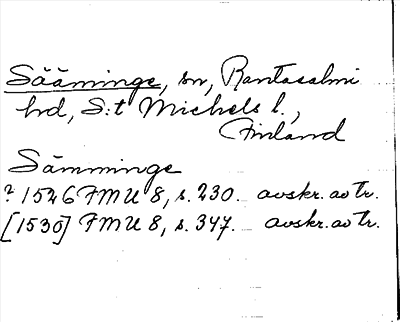 Sääminge, sn, Rantasalmi
hd, S:t Michels l.,
Finland
Sämminge
? 1526 FMU 8, s. 230. avskr. av tr.
[1530] FMU 8, s. 347. avskr. av tr.